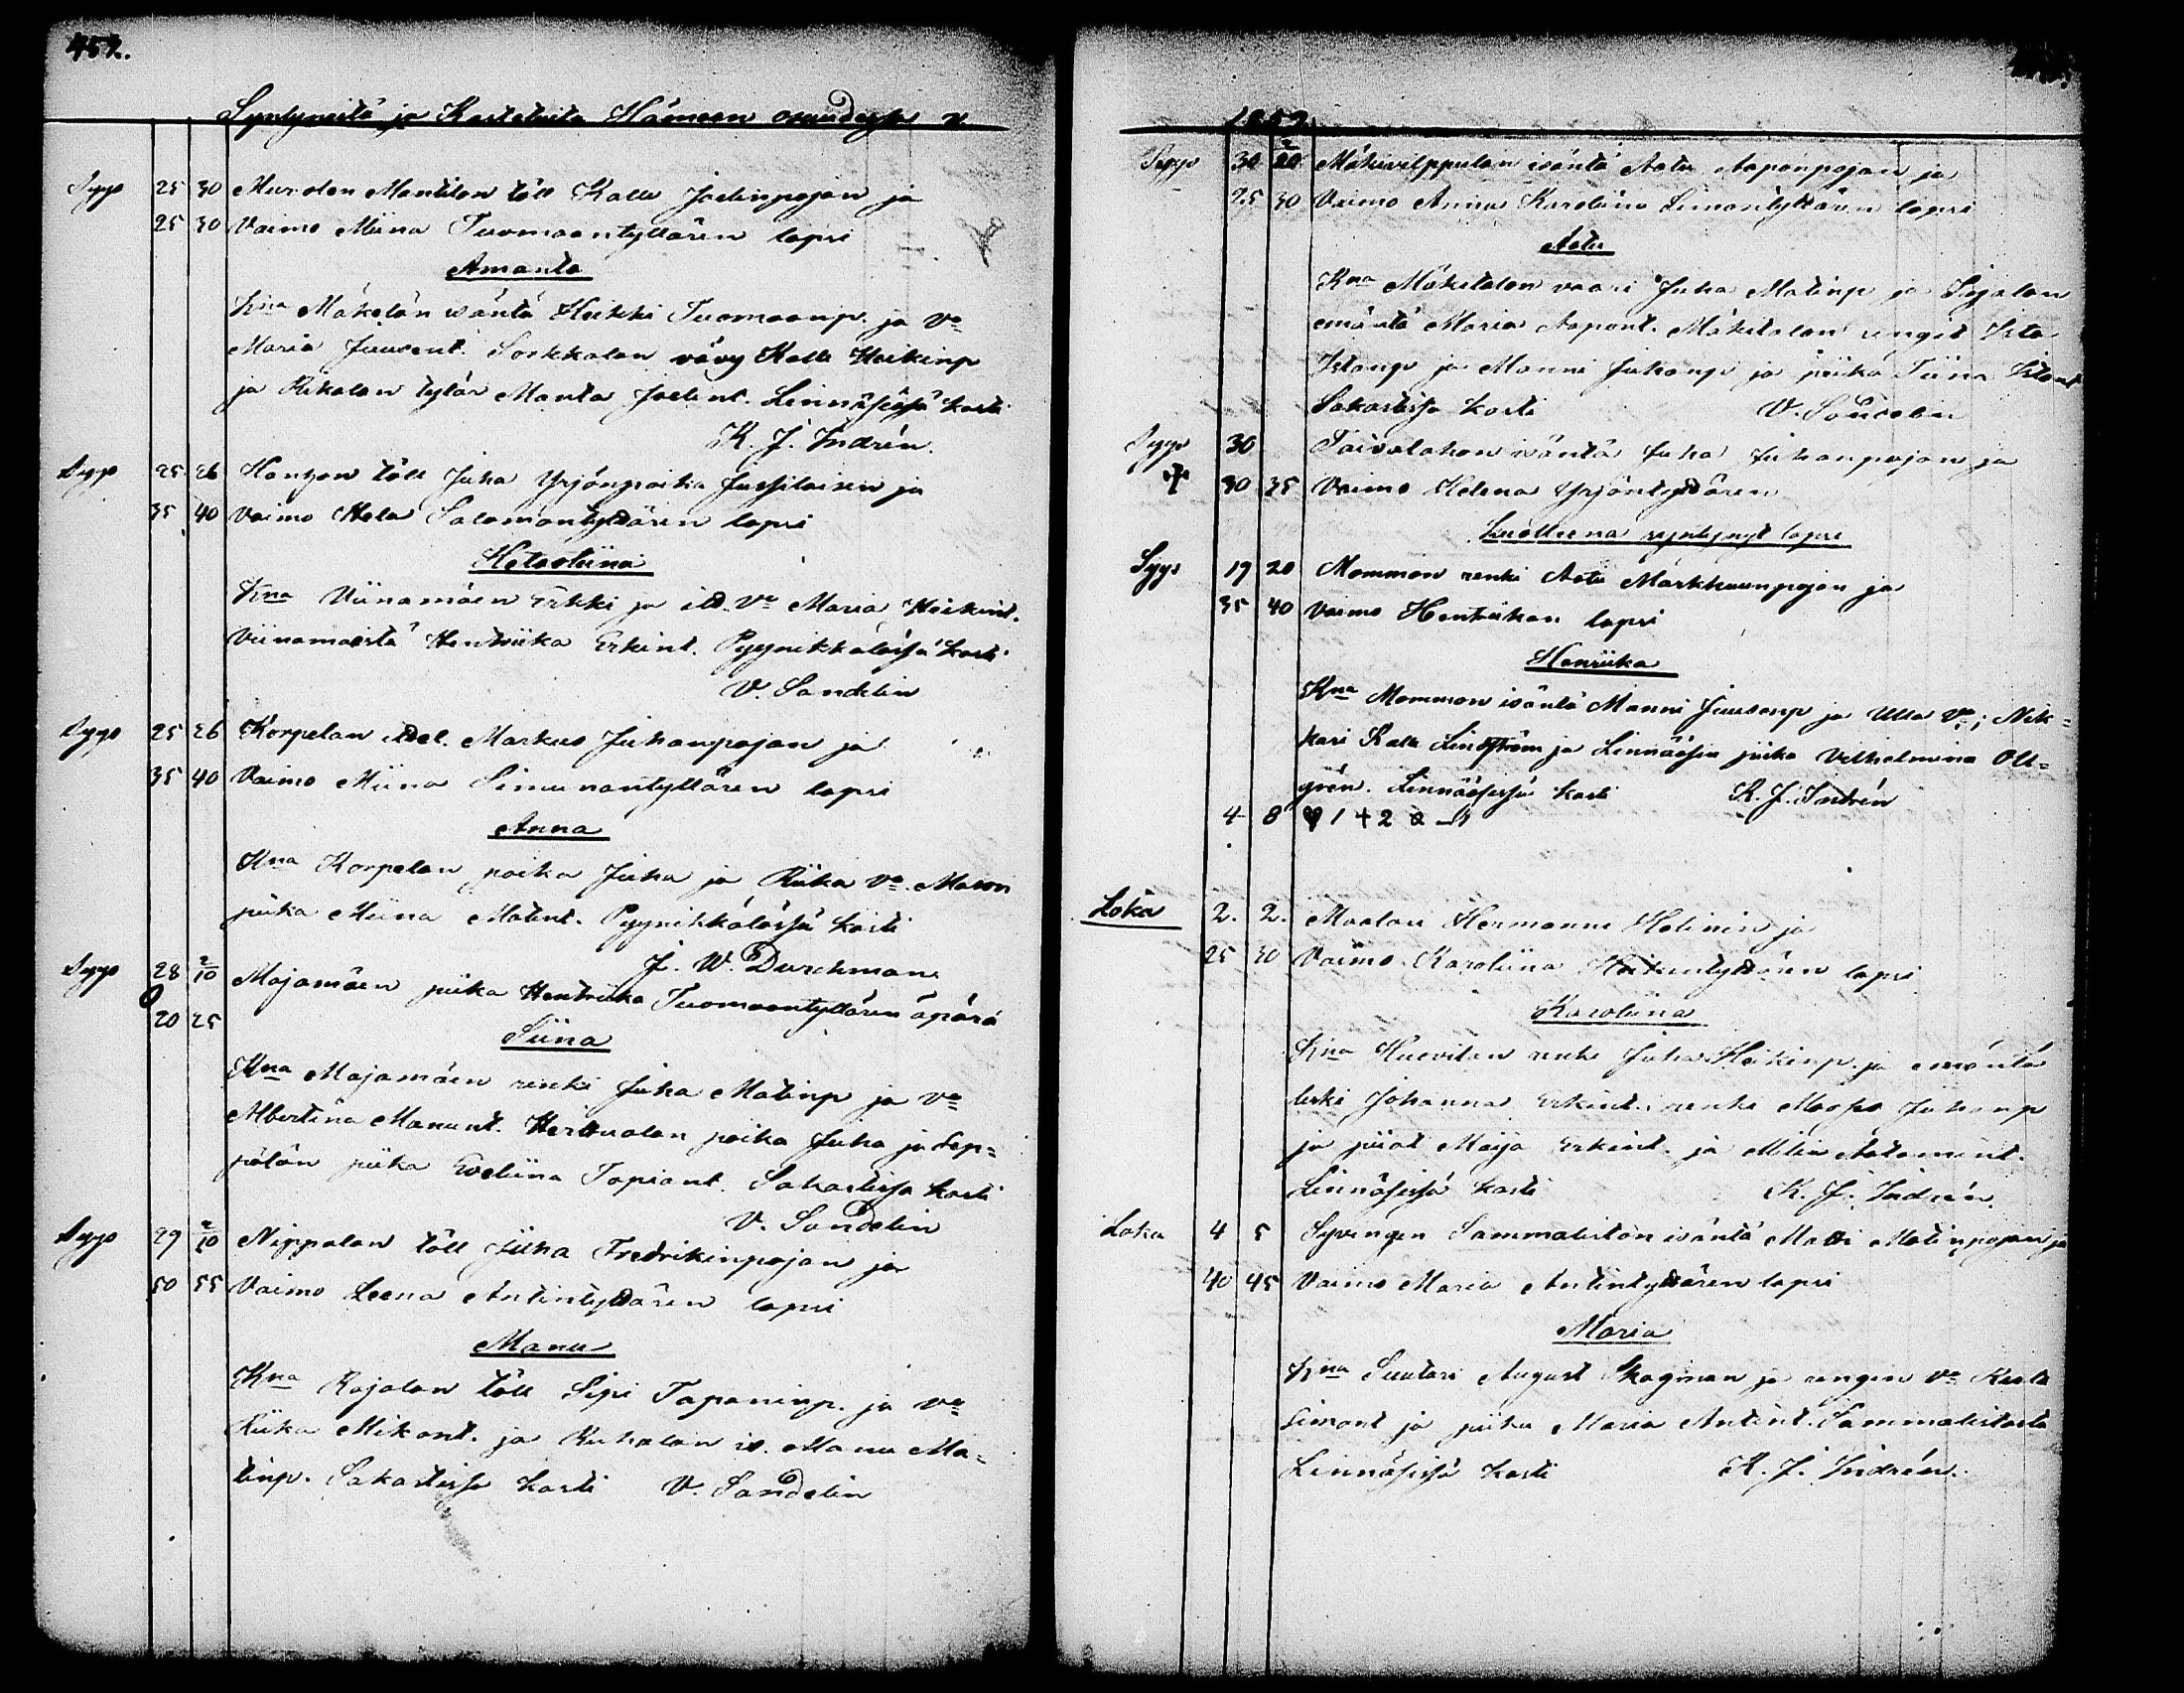 452.
Syntyneitä ja Kasteluita Hämeen osuudessa v.
Syys 25 30 Murolan Manttilan töll Kalle Joelinpojan ja
25 30 Vaimo Miina Tuomaantyttären lapsi
Amanta
Kna Mäkelän isäntä Heikki Tuomaanp. ja Vo
Maria Juusent. Sorkkalan vävy Kalle Heikinp
ja Rikalan tytär Manta Joelint. Linnäsissä kasti
K. J. Indrén.
Syys 25 26 töll Juha Yrjönpoika Jussilaisen ja
35 40 Vaimo Hela Salamontyttären lapsi
Hetastiina
Kna Viinamäen Erkki ja itl. Vo Maria Heikint.
Viinamäestä Hentriika Erkint. Pyynikkälässä kasti
V. Sandelin
Syys 25 26 Korpelan itel. Markus Juhanpojan ja
35 40 Vaimo Miina Simunantyttären lapsi
Anna
Kna Korpelan poika Juha ja Riika Vo.
piika Miina Matint. Pyynikkälässä kasti
J. W. Durchman
Syys 28 2/10 Majamäen piika Hentriika Tuomaantyttären äpärä
20 25
Siina
Kna Majamäen renki Juha Matinp ja Vo
Albertina Manunt. Herttualan poika Juha ja Sep=
pälän piika Eveliina Tapiant. Sakastissa kasti
V. Sandelin
Syys 29 2/10 Nippalan töll Juha Fredrikinpojan ja
50 55 Vaimo Leena Antintyttären lapsi
Manu
Kna Rajalan töll Sipi Tapaninp. ja Vo
Riika Mikont. ja Ruhalan is. Manu Ma=
tinp. Sakastissa kasti V. Sandelin
1852
Syys 30 2/10 Mäkivilppulan isäntä Aatu Aaponpojan ja
25 30 Vaimo Anna Karoliina Simontyttären lapsi
Aatu
Kna Mäkitalon vaari Juha Matinp ja Sirjalan
emäntä Maria Aapont. Mäkitalon rengit Iita
ja Manni Juhanp ja piika Tiina
Sakastissa kasti V. Sandelin
Syys 30 Taivalahon isäntä Juha Juhanpojan ja
✝ 30 35 Vaimo Helena Yrjöntyttären
kuolleena syntynyt lapsi
Syys 19 20 Mommon renki Aatu Markkuunpojan ja
35 40 Vaimo Hentriikan lapsi
Henriika
Kna Mommon isäntä Manni Juusenp ja Ulla Vo; Nik=
kari Kalle Lindström ja Linnäisin piika Vilhelmina Oll=
grén. Linnäsissä kasti K. J. Indrén
4 8 1 + 2
Loka 2. 2. Maalari Hermanni Helinin ja
25 30 Vaimo Karoliina Heikintyttären lapsi
Karoliina
Kna Huovilan renki Juha Heikinp. ja emäntä
leski Johanna Erkint. renki Juhanp
ja piiat Maija Erkint. ja Milia Aatamint.
Linnäsissä kasti K. J. Indrén.
Loka 4 5 Syvingin Sammaliston isäntä Matti Matinpojan ja
40 45 Vaimo Maria Antintyttären lapsi
Maria
Kna Suutari August Skogman ja rengin Vo
Simont ja piika Maria Antint. Sammalistosta
Linnäsissä kasti K. J. Indrén.